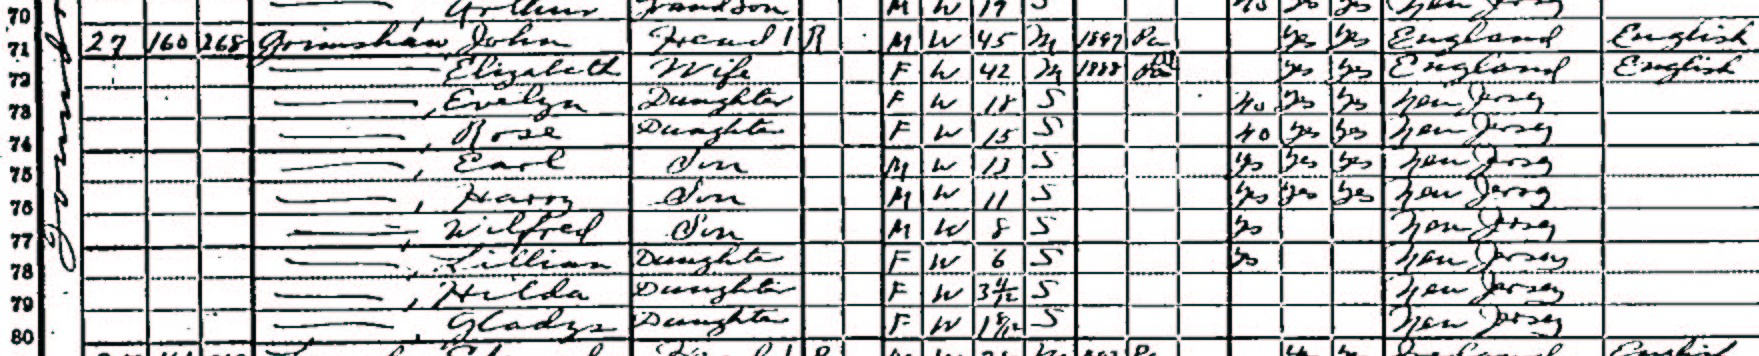 70 Arthur Grandson M W 19 S no yes yes New Jersey
71 27 160 268 Grimshaw John Head 1 R M W 45 M 1887 Pa yes yes England English
72 Elizabeth Wife F W 42 M 1888 Pa yes yes England English
73 , Evelyn Daughter F W 18 S no yes yes New Jersey
74 , Rose Daughter F W 15 S no yes yes New Jersey
75 , Earl Son M W 13 S yes yes yes New Jersey
76 , Harry Son M W 11 S yes yes yes New Jersey
77 , Wilfred Son M W 8 S yes New Jersey
78 , Lillian Daughter F W 6 S yes New Jersey
79 , Hilda Daughter F W 3 4/12 S New Jersey
80 , Gladys Daughter F W 1 8/12 S New Jersey